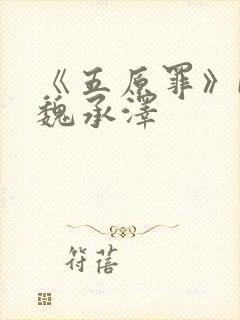 《五原罪》
魏承澤
符蓓